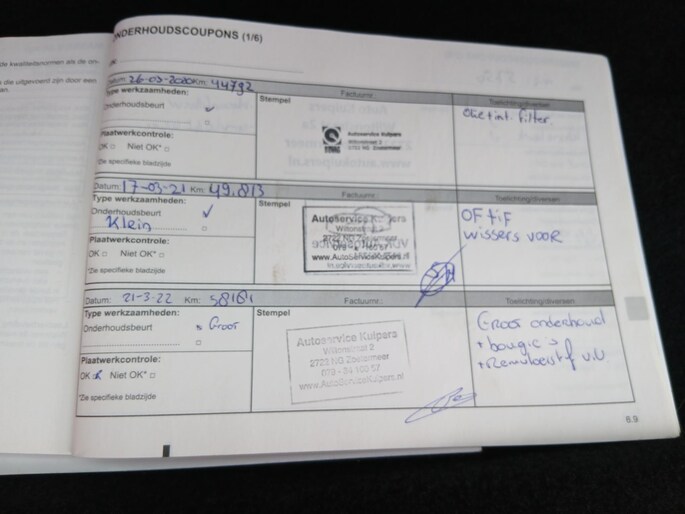 de kwaliteitsnormen als de on-
die uitgevoerd zijn door een
ONDERHOUDSCOUPONS (1/6)
Datum: 26-03-2020 Km: 44792
Factuurnr.:
Toelichting/diversen
Type werkzaamheden:
Stempel
Onderhoudsbeurt
Olie + int. filter.
Autoservice Kuipers
Plaatwerkcontrole:
OK Niet OK*
*Zie specifieke bladzijde
Datum: 17-03-21 Km: 49.813
Factuurnr.:
Toelichting/diversen
Type werkzaamheden:
Stempel
Onderhoudsbeurt
Klein
OF + iF
wissers voor
Autoservice Kuipers
2723 NG Zoetermeer
www.AutoServiceKuipers.nl
Plaatwerkcontrole:
OK Niet OK*
*Zie specifieke bladzijde
Datum: 21-3-22 Km: 58161
Factuurnr.:
Toelichting/diversen
Type werkzaamheden:
Stempel
Onderhoudsbeurt Groot
Groot onderhoud
+ bougie's
+ Remvloeistof v.v
Autoservice Kuipers
2723 NG Zoetermeer
www.AutoServiceKuipers.nl
Plaatwerkcontrole:
OK Niet OK*
*Zie specifieke bladzijde
6.9